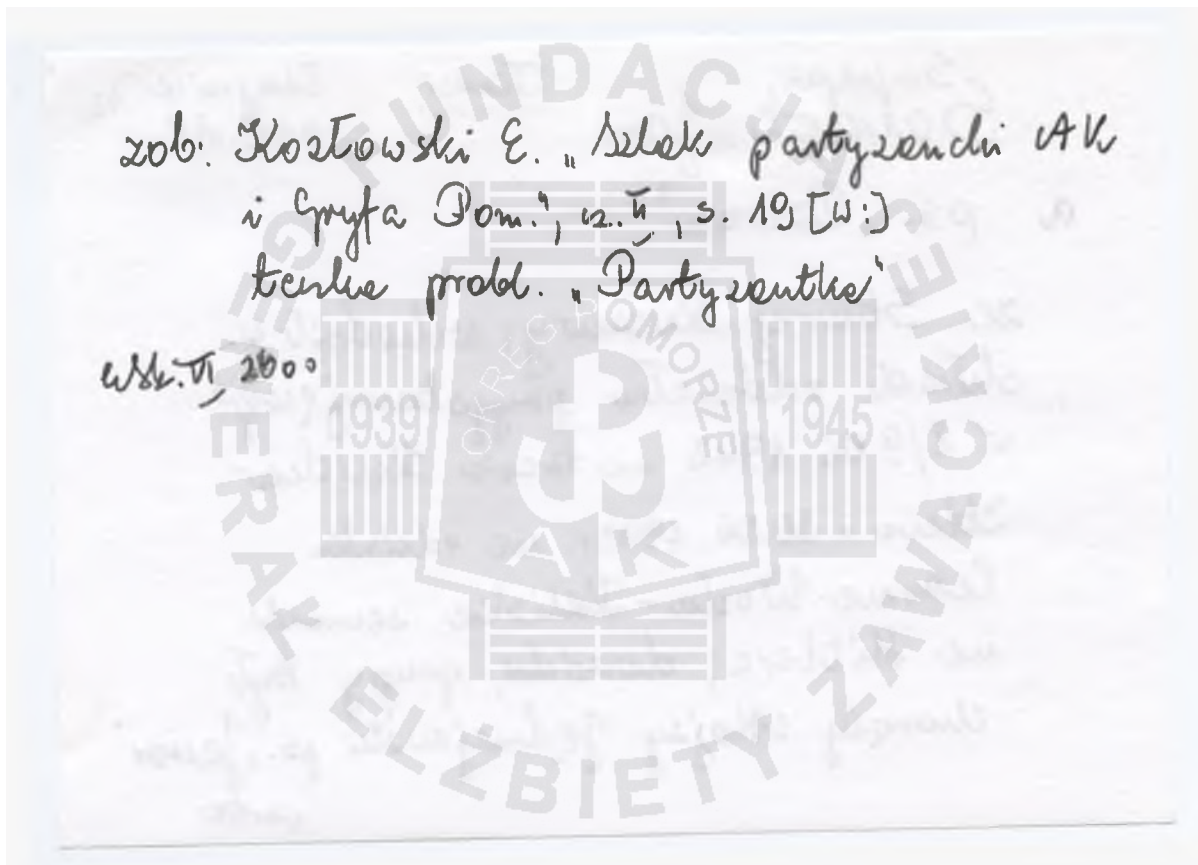 zob. Kozłowski E. „Szlak partyzancki AK
i Gryfa Pom.", cz. II, s. 19 [w:]
teczka probl. „Partyzantka"
wsk. VI 2000
FUNDACJA GENERAŁ ELŻBIETY ZAWACKIEJ
OKRĘG POMORZE
1939 1945
AK